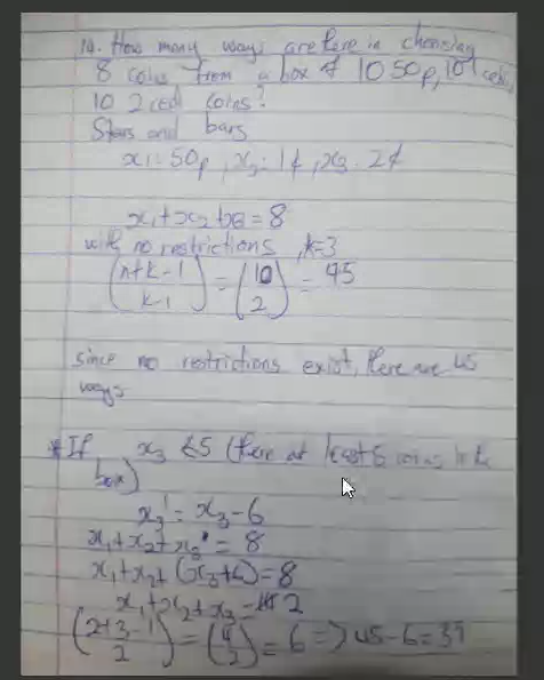 10. How many ways are there in choosing
8 coins from a box of 10 50p, 10 1 cent,
10 2 cent coins?
Stars and bars
x1: 50p, x2: 1¢, x3: 2¢
x1 + x2 + x3 = 8
with no restrictions, k=3
(n+k-1 / k-1) = (10 / 2) = 45
since no restrictions exist, there are 45
ways
* If x3 ≤5 (there at least 6 coins in the
box)
x3' = x3 - 6
x1 + x2 + x3' = 8
x1 + x2 + (x3+6) = 8
x1 + x2 + x3 = 2
(2+3-1 / 2) = (4 / 2) = 6 => 45-6=39